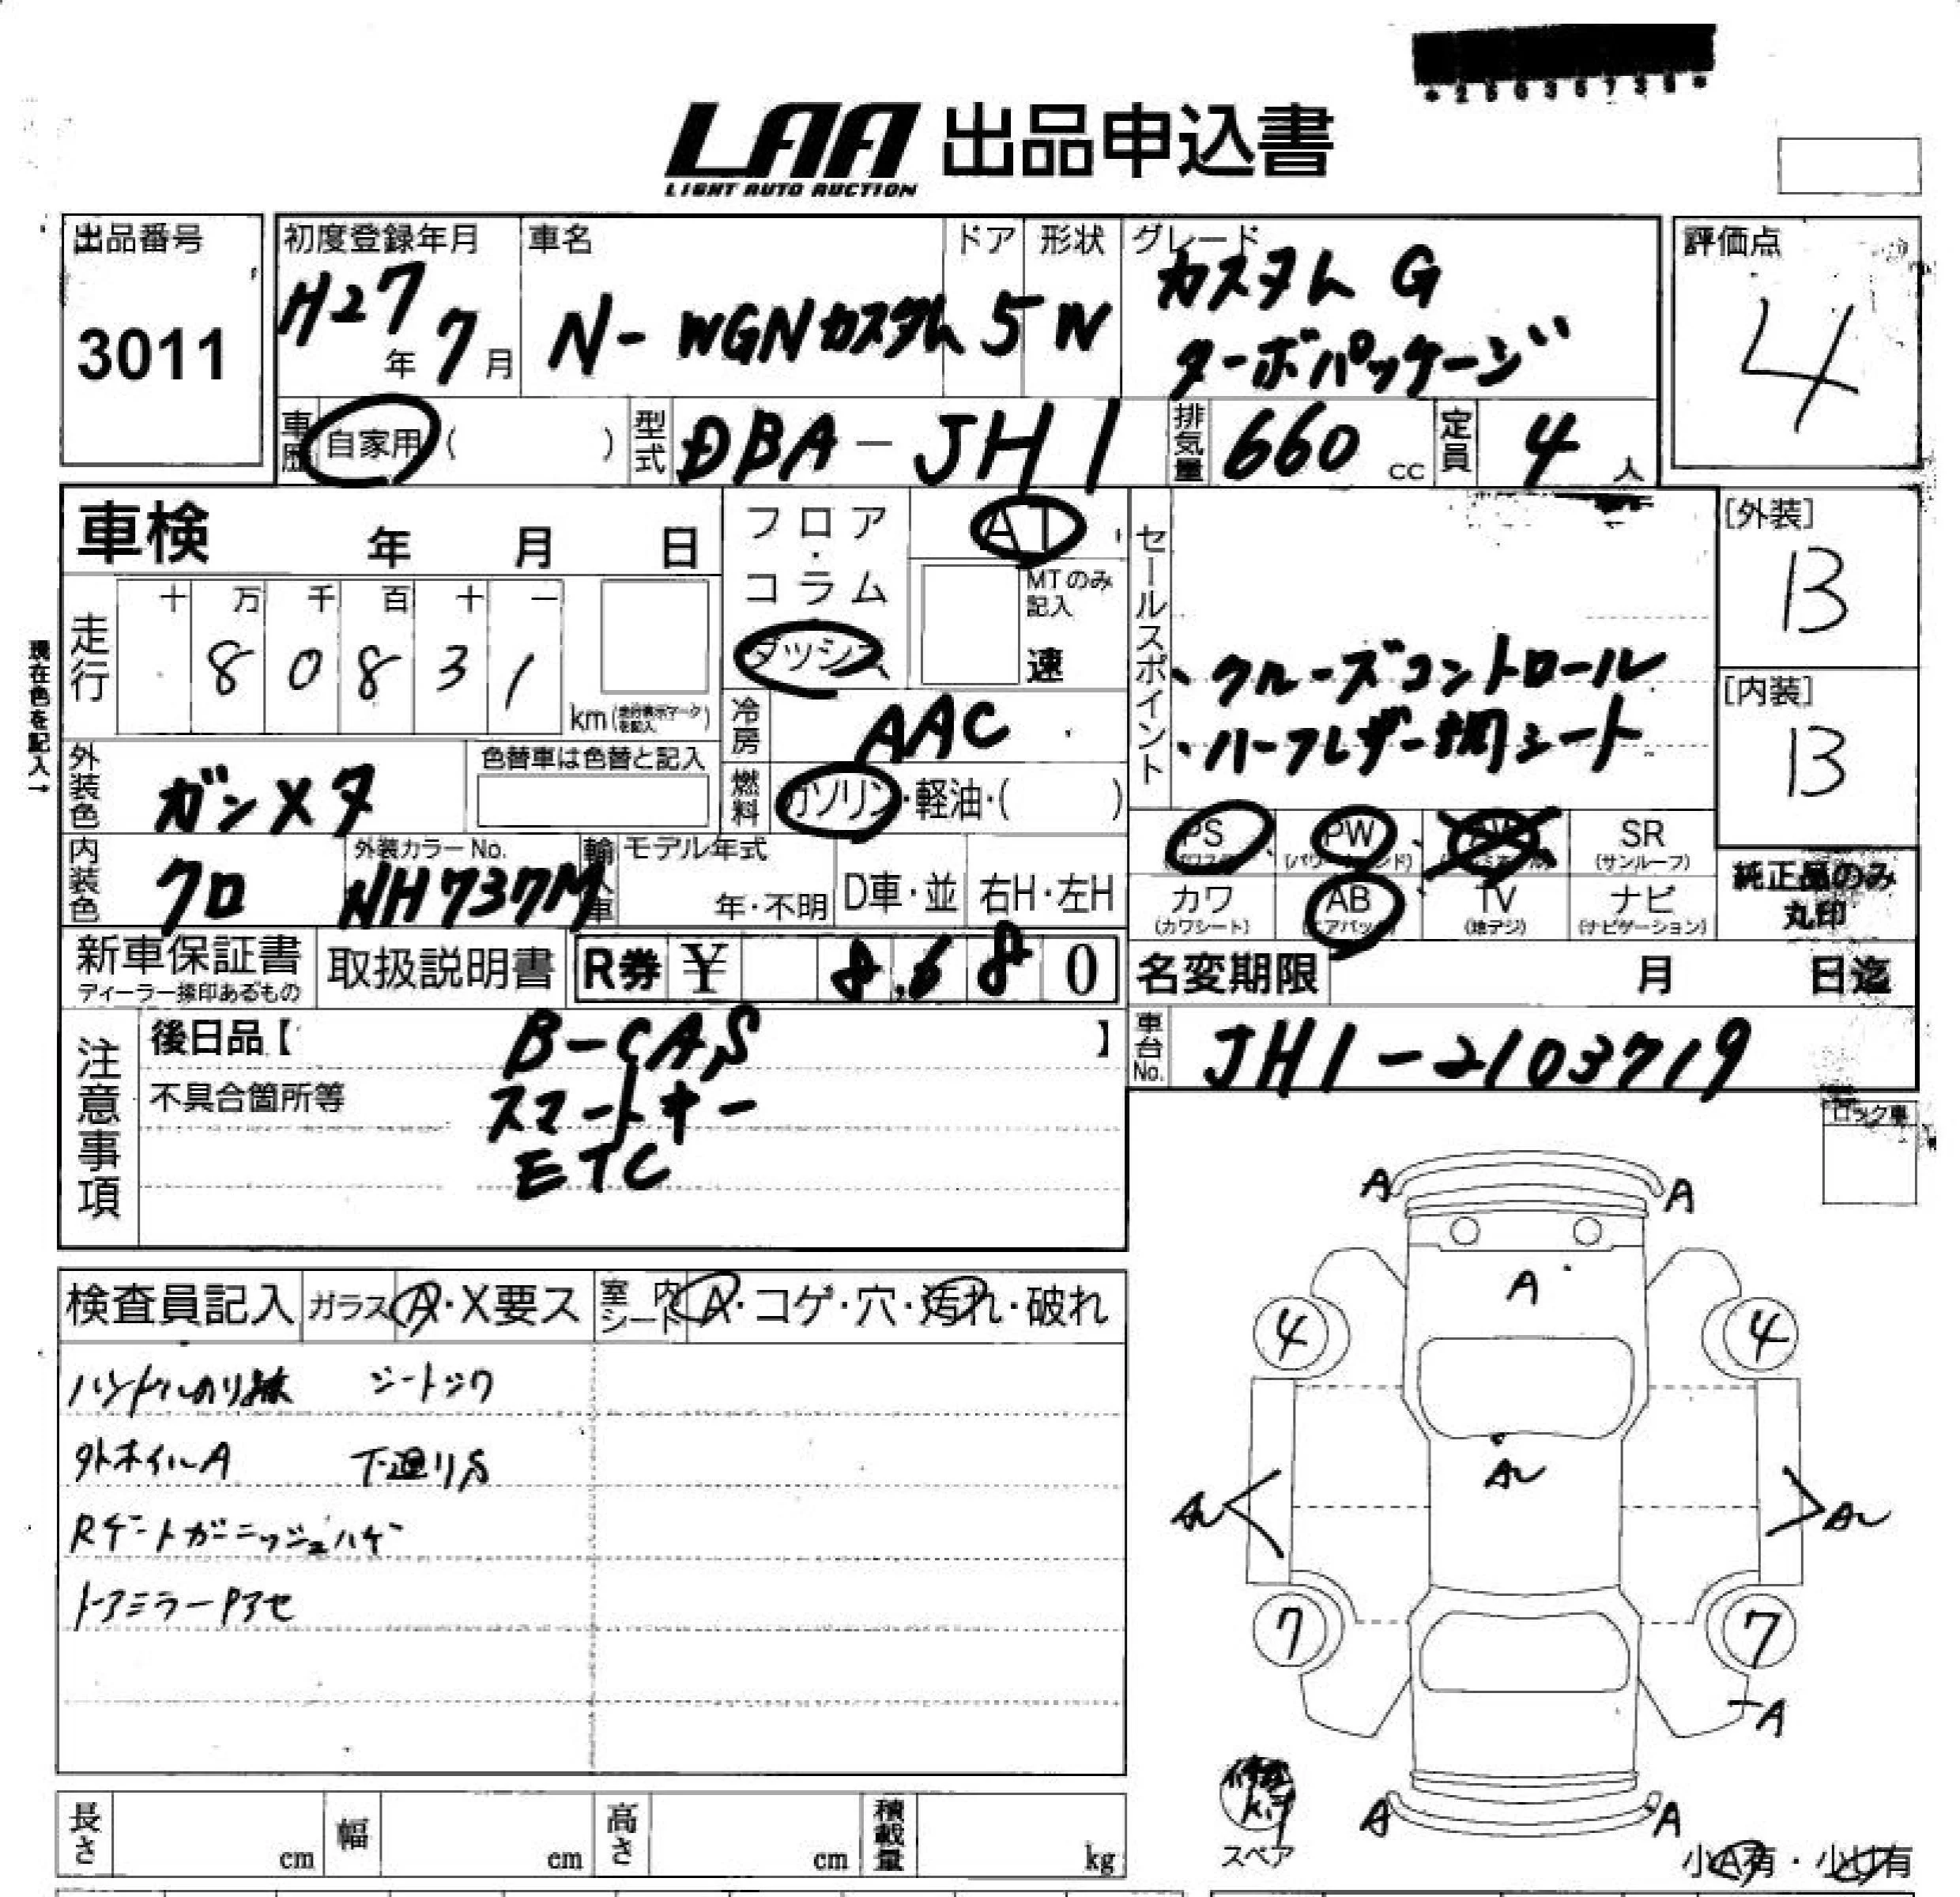 *25035735*
LAA 出品申込書
LIGHT AUTO AUCTION
出品番号
3011
初度登録年月
H27年 7月
車名
N-WGNカスタム
ドア
5
形状
W
グレード
カスタム G
ターボパッケージ
評価点
4
車歴 自家用 ( )
型式 DBA-JH1
排気量 660 cc
定員 4 人
車検 年 月 日
現在色を記入→
走行
十 万 千 百 十 一
8 0 8 3 1
km (走行表示マークを記入)
フロア・コラム
ダッシュ
AT
MTのみ記入
速
冷房 AAC
燃料 ガソリン・軽油・( )
外装色 ガンメタ
色替車は色替と記入
内装色 クロ
外装カラーNo.
NH737M
輸入車 モデル年式
年・不明
D車・並
右H・左H
セールスポイント
・クルーズコントロール
・ハーフレザー調シート
[外装]
B
[内装]
B
PS
PW
AW
SR
(サンルーフ)
カワ
(カワシート)
AB
(エアバッグ)
TV
(地デジ)
ナビ
(ナビゲーション)
純正品のみ
丸印
新車保証書
ディーラー捺印あるもの
取扱説明書
R券 ¥ 8,680
名変期限 月 日迄
車台No. JH1-2103719
注意事項
後日品【 B-CAS 】
不具合箇所等
スマートキー
ETC
ロック車
検査員記入
ガラス A・X要ス
室内シート A・コゲ・穴・汚れ・破れ
シートシワ
外ホイルA
下廻りS
Rゲートガーニッシュハゲ
ドアミラーPアセ
A A
A
4 4
A
A
7 7
A
A A
スペア
小A有・小U有
長さ cm
幅 cm
高さ cm
積載量 kg